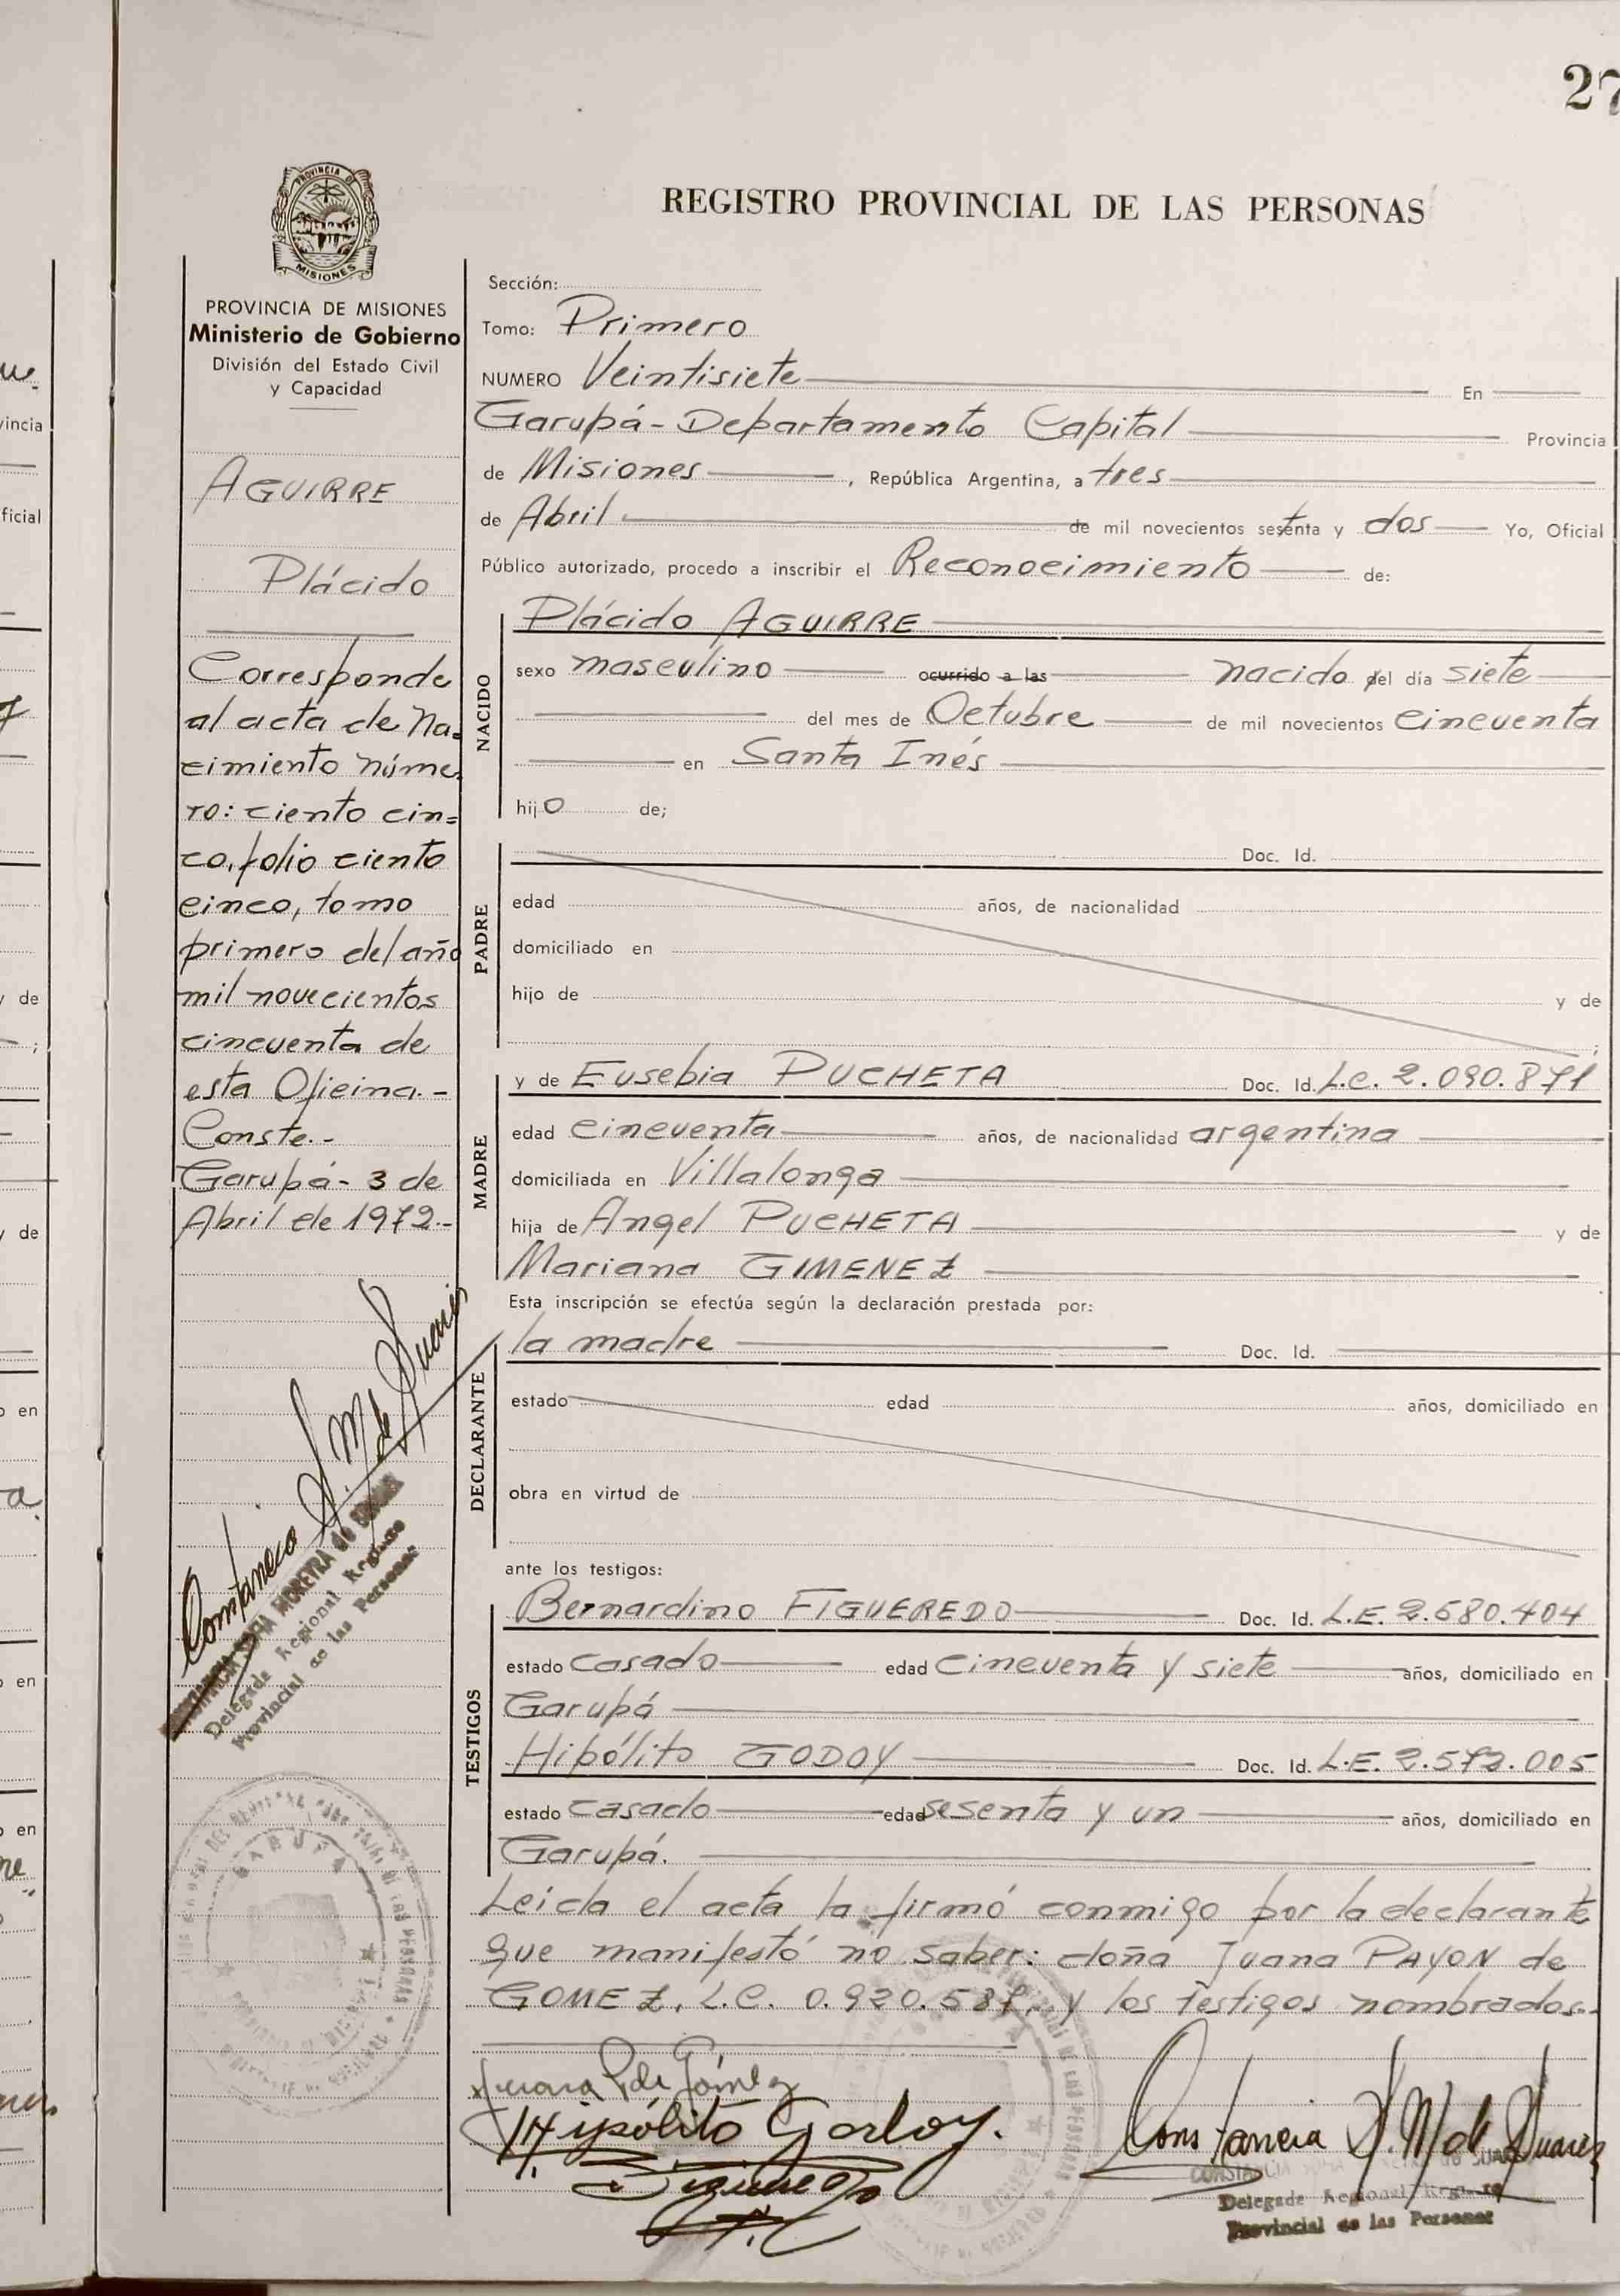 27
REGISTRO PROVINCIAL DE LAS PERSONAS
PROVINCIA DE
MISIONES
PROVINCIA DE MISIONES
Ministerio de Gobierno
División del Estado Civil
y Capacidad
AGUIRRE
Plácido
Corresponde
al acta de Na=
cimiento núme
ro: ciento cin=
co, folio ciento
cinco, tomo
primero del año
mil novecientos
cincuenta de
esta Oficina.-
Conste.-
Garupá- 3 de
Abril de 1972.-
Constancia S. M. de Suarez
Delegada Regional Registro
Provincial de las Personas
Sección:
Tomo: Primero
NUMERO Veintisiete En
Garupá-Departamento Capital Provincia
de Misiones, República Argentina, a tres
de Abril de mil novecientos setenta y dos Yo, Oficial
Público autorizado, procedo a inscribir el Reconocimiento de:
NACIDO
Plácido AGUIRRE
sexo masculino ocurrido a las nacido el día siete
del mes de Octubre de mil novecientos cincuenta
en Santa Inés
hijo de;
PADRE
Doc. Id.
edad años, de nacionalidad
domiciliado en
hijo de y de
;
MADRE
y de Eusebia PUCHETA Doc. Id. L.C. 2.090.871
edad cincuenta años, de nacionalidad argentina
domiciliada en Villalonga
hija de Angel PUCHETA y de
Mariana GIMENEZ
Esta inscripción se efectúa según la declaración prestada por:
DECLARANTE
la madre Doc. Id.
estado edad años, domiciliado en
obra en virtud de
ante los testigos:
TESTIGOS
Bernardino FIGUEREDO Doc. Id. L.E. 2.580.404
estado casado edad cincuenta y siete años, domiciliado en
Garupá
Hipólito GODOY Doc. Id. L.E. 2.572.005
estado casado edad sesenta y un años, domiciliado en
Garupá.
Leida el acta la firmó conmigo por la declarante
que manifestó no saber: doña Juana PAYON de
GOMEZ, L.C. 0.920.587, y los testigos nombrados.-
Juana P de Gómez
Hipólito Godoy.
Constancia S. M de Suarez
Delegada Regional Registro
Provincial de las Personas